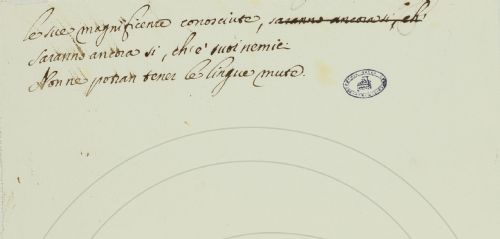 le sue magnificenze conosciute, saranno ancora si, ch'
saranno ancora si, ch'e' suoi nemici
Non ne potran tener le lingue mute.